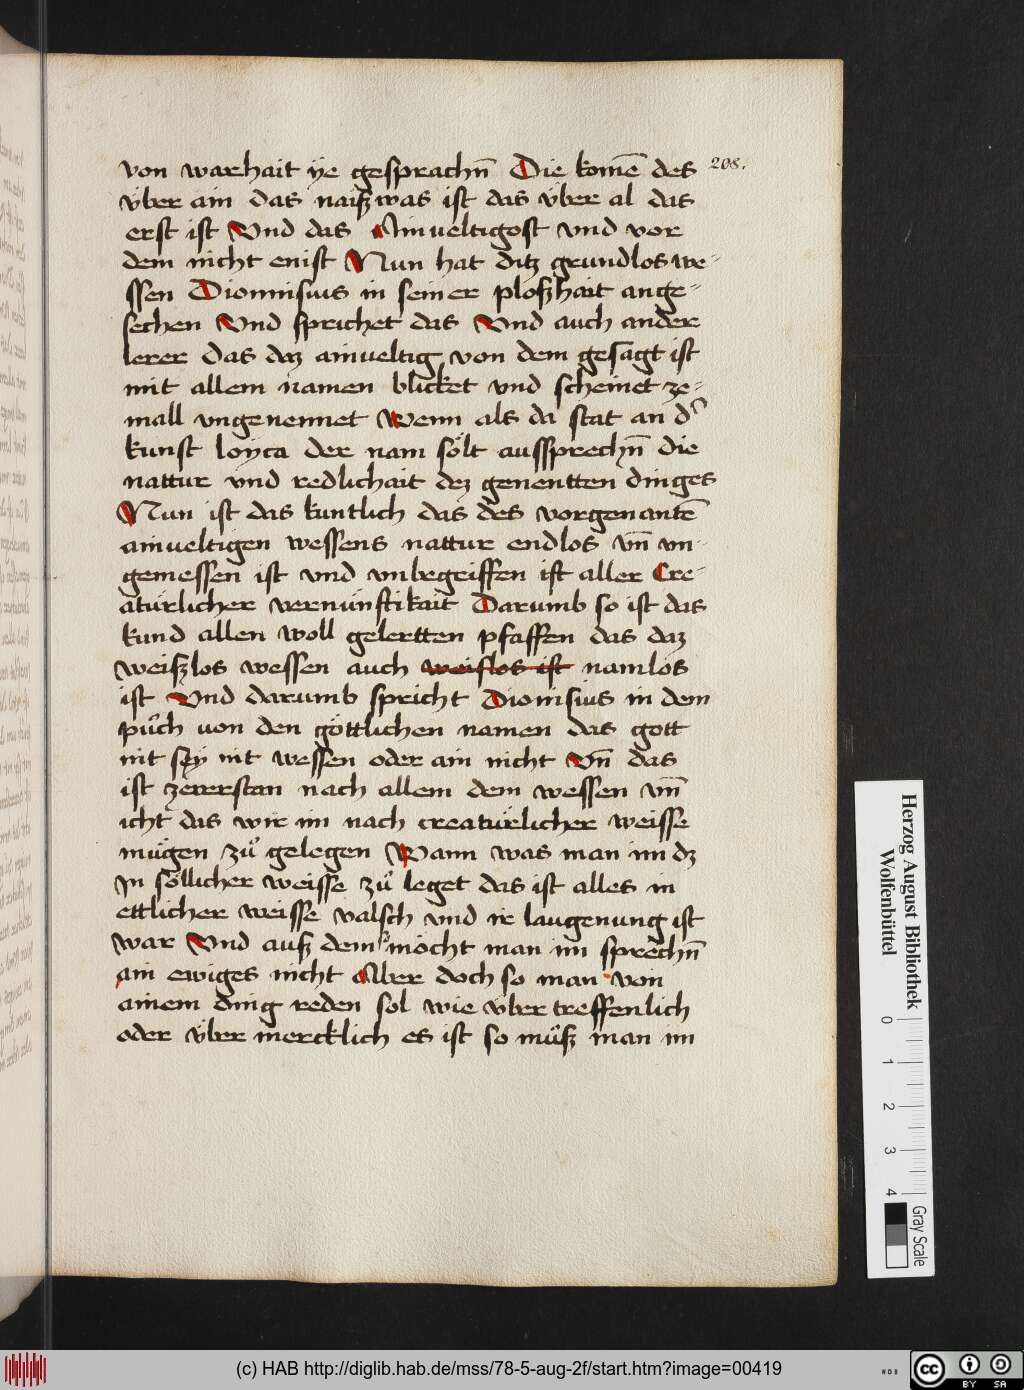 von warhait ÿe gesprachn̄ Die komē des 208.
v̈ber ain das naiſzwas ist das v̈ber al das
erst ist Vnd das Ainueltigost vnd vor
dem nicht enist Nun hat ditz grundlos we-
ſſen Dionnisius in seiner ploſzhait ange-
sechen Vnd sprichet das Vnd auch ander
lerer das daz ainueltig von dem gesagt ist
mit allem namen blicket vnd scheinet ze-
mall vngenennet Wenn als da stat an d᷑
kunst loyca der nam sölt ausſprechn̄ die
nattur vnd redlichait dez genentten dinges
Nun ist das kuntlich das des vorgenantē
ainueltigen wesſens nattur endlos vn̄ vn-
gemesſen ist vnd vnbegriffen ist aller Cre-
atürlicher vernünftikait Darumb so ist das
kund allen woll gelertten pfaffen das daz
weiſzlos wesſen auch weiſlos ist namlos
ist Vnd darumb spricht Dionisius in dem
pu̇ch uon den göttlichen namen das gott
nit seÿ nit wesſen oder ain nicht Vn̄ das
ist zeuerstan nach allem dem wesſen vn̄
icht das wir im nach creatürlicher weisſe
mügen zů gelegen Wann was man im dz
Jn söllicher weisſe zů leget das ist alles in
ettlicher weisſe valsch vnd ir laugenung ist
war Vnd auſz dem möcht man im sprechn̄
ain ewiges nicht Aber doch so man von
ainem ding reden sol wie v̈ber treffenlich
oder v̈ber mercklich es ist so mu̇ſz man im
Herzog August Bibliothek
Wolfenbüttel
0 1 2 3 4
Gray Scale
(c) HAB http://diglib.hab.de/mss/78-5-aug-2f/start.htm?image=00419
cc BY SA